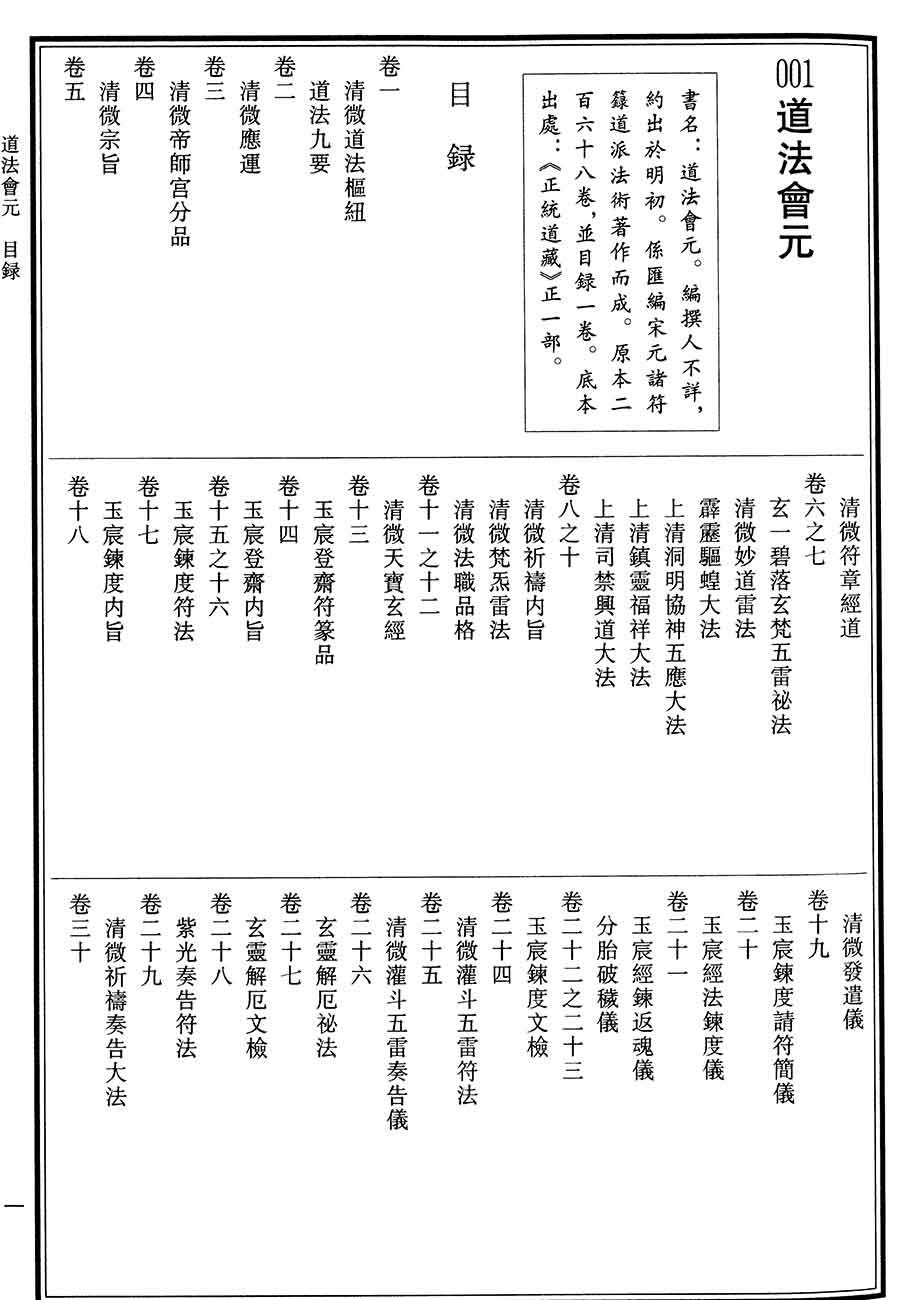 001道法會元
書名：道法會元。編撰人不詳，
約出於明初。係匯編宋元諸符
籙道派法術著作而成。原本二
百六十八卷，並目録一卷。底本
出處：《正統道藏》正一部。
目録
卷一
清微道法樞紐
道法九要
卷二
清微應運
卷三
清微帝師宫分品
卷四
清微宗旨
卷五
清微符章經道
卷六之七
玄一碧落玄梵五雷祕法
清微妙道雷法
霹靂驅蝗大法
上清洞明協神五應大法
上清鎮靈福祥大法
上清司禁興道大法
卷八之十
清微祈禱内旨
清微梵炁雷法
清微法職品格
卷十一之十二
清微天寶玄經
卷十三
玉宸登齋符篆品
卷十四
玉宸登齋内旨
卷十五之十六
玉宸鍊度符法
卷十七
玉宸鍊度内旨
卷十八
清微發遣儀
卷十九
玉宸鍊度請符簡儀
卷二十
玉宸經法鍊度儀
卷二十一
玉宸經鍊返魂儀
分胎破穢儀
卷二十二之二十三
玉宸鍊度文檢
卷二十四
清微灌斗五雷符法
卷二十五
清微灌斗五雷奏告儀
卷二十六
玄靈解厄祕法
卷二十七
玄靈解厄文檢
卷二十八
紫光奏告符法
卷二十九
清微祈禱奏告大法
卷三十
道法會元 目録
一